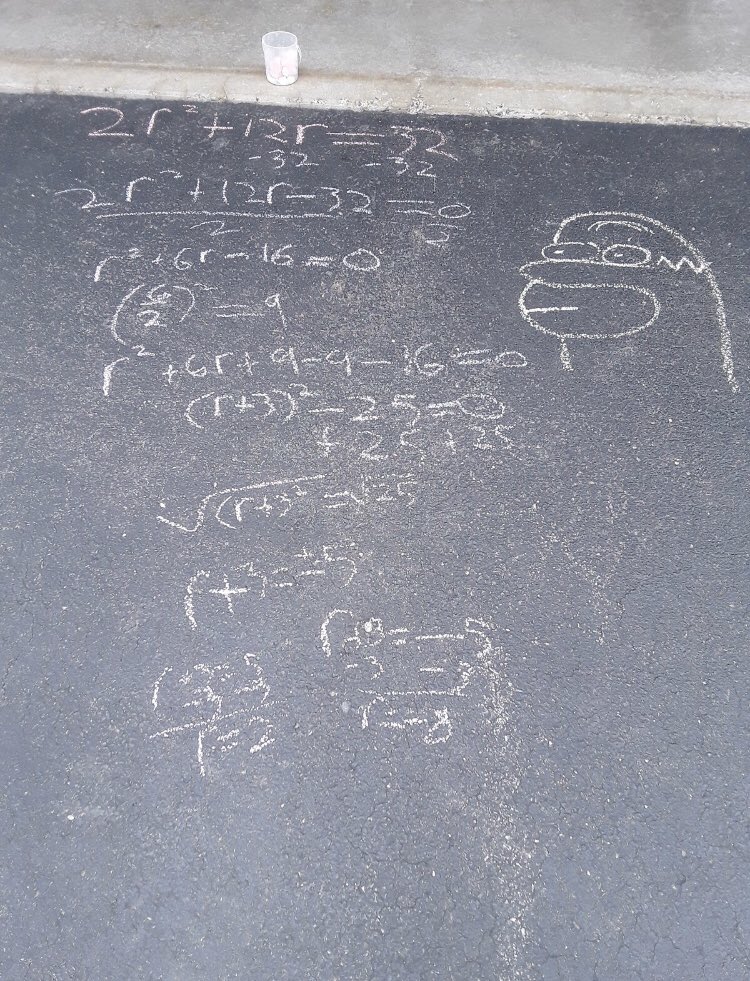 2r²+12r=32
-32 -32
2r²+12r-32=0
2 2
r²+6r-16=0
(6/2)²=9
r²+6r+9-9-16=0
(r+3)²-25=0
+25 +25
√(r+3)²=√25
r+3=±5
r+3=5
-3 -3
r=2
r+3=-5
-3 -3
r=-8